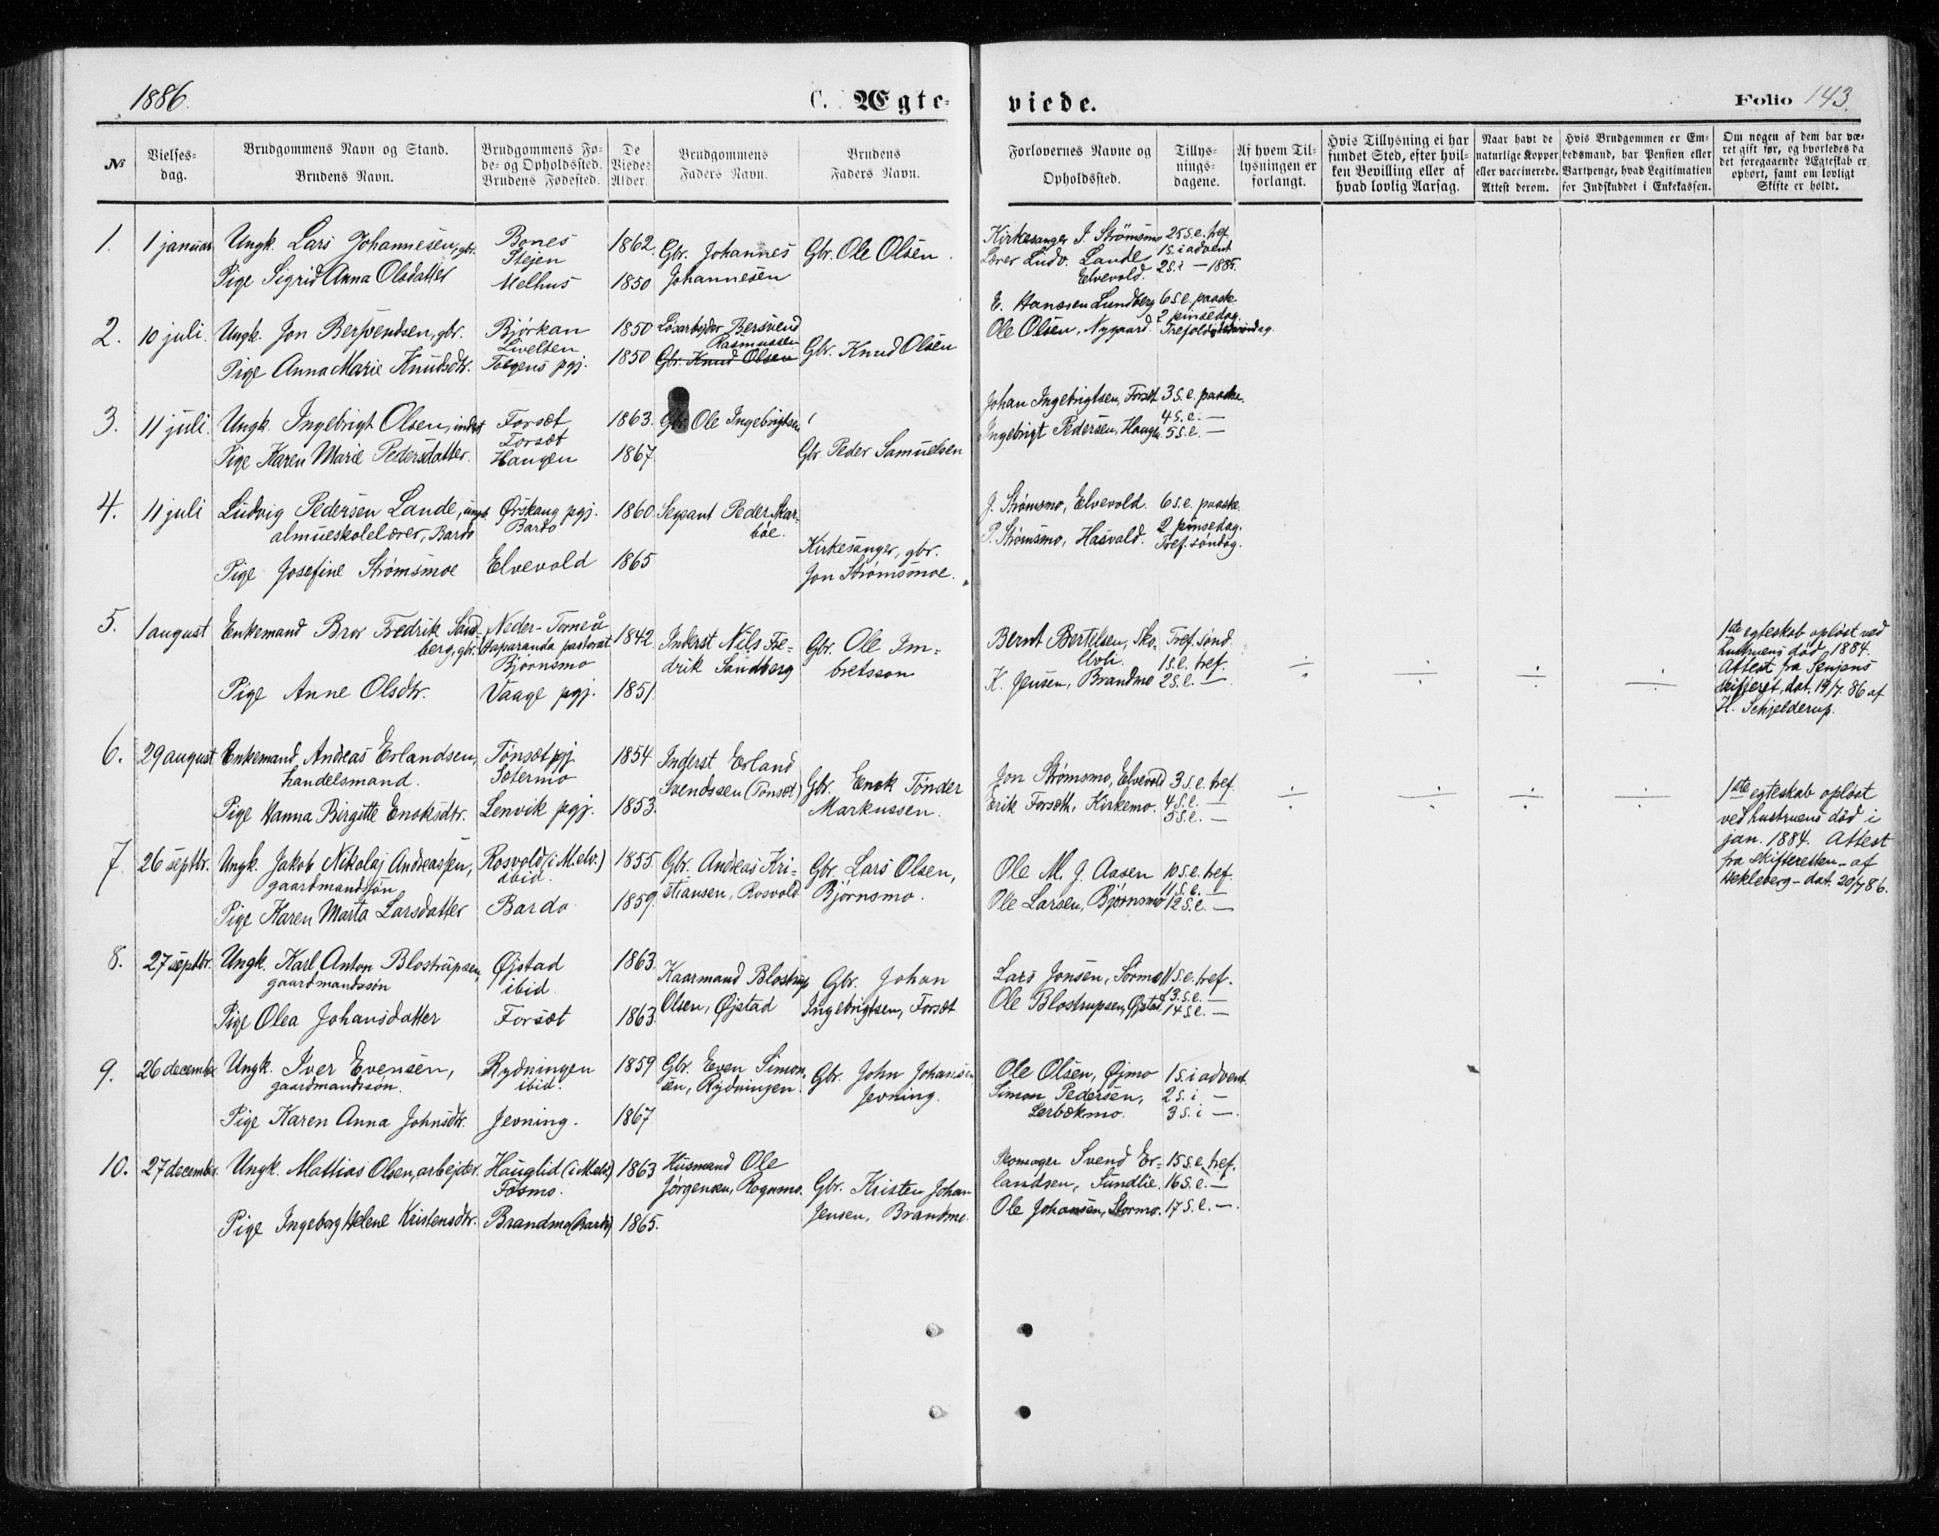 1886.
C. Ægte-
viede.
Folio 143.
№
Vielses-
dag.
Brudgommens Navn og Stand.
Brudens Navn.
Brudgommens Fø-
de- og Opholdssted.
Brudens Fødested.
De
Viedes
Alder.
Brudgommens
Faders Navn.
Brudens
Faders Navn.
Forlovernes Navne og
Opholdssted.
Tillys-
nings-
dagene.
Af hvem Til-
lysningen er
forlangt.
Hvis Tillysning ei har
fundet Sted, efter hvil-
ken Bevilling eller af
hvad lovlig Aarsag.
Naar havt de
naturlige Kopper
eller vaccinerede.
Attest derom.
Hvis Brudgommen er Em-
bedsmand, har Pension eller
Vartpenge, hvad Legitimation
for Indskuddet i Enkekassen.
Om nogen af dem har væ-
ret gift før, og hvorledes da
det foregaaende Ægteskab er
ophørt, samt om lovligt
Skifte er holdt.
1. 1 januar
Ungk. Lars Johannesen, gbr.
Pige Sigrid Anna Olsdatter
Bones
Stejen
Melhus
1862.
1850
Gbr. Johannes
Johannesen
Gbr. Ole Olsen.
Kirkesanger J. Strømsmo
Lærer Ludv. Lande
Elvevold.
25 s.e. tref.
1 s. i advent
2 s. i — 1885.
2. 10 juli.
Ungk. Jon Bersvendsen, gbr.
Pige Anna Marie Knudsdtr.
Bjørkan
Livelten
Tolgens pgj.
1850
1850
Løsarbejder Bersvend
Rasmussen
Gbr. Knud Olsen
Gbr. Knud Olsen
E. Hanssen Lundberg
Ole Olsen, Nygaard.
6 s.e. paaske
2 pinsedag.
Trefoldighedssøndag.
3. 11 juli.
Ungk. Ingebrigt Olsen, inderst
Pige Karen Marie Pedersdatter.
Forsæt
Forsæt
Haugen
1863.
1867.
Gbr. Ole Ingebrigtsen
Gbr. Peder Samuelsen
Johan Ingebrigtsen, Forsæt
Ingebrigt Pedersen, Haugen
3 s.e. paaske.
4 s.e. —
5 s.e. —
4. 11 juli
Ludvig Pedersen Lande, ungk.
almueskolelærer, Bardo
Pige Josefine Strømsmoe
Ørskaug pgj.
Bardo
Elvevold
1860.
1865
Sergant Peder Skar-
bøe.
Kirkesanger, gbr.
Jon Strømsmoe.
J. Strømsmo, Elvevold.
P. Strømsmo, Hasvold.
6 s.e. paaske
2 pinsedag.
Tref. søndag.
5. 1 august
Enkemand Bror Fredrik Sand-
berg, gbr.
Pige Anne Olsdtr.
Neder-Torneå
Haparanda pastorat
Bjørnsmo
Vaage pgj.
1842.
1851.
Inderst Nils Fre-
drik Sandberg
Gbr. Ole Im-
bretsson
Bernt Bertilsen, Sko-
livli.
K. Jensen, Brandmo
Tref. sønd.
1 s.e. tref.
2 s.e. —
÷ ÷ ÷ ÷
1ste egteskab opløst ved
hustruens død, 1884.
Attest fra Senjens
skifteret, dat. 19/7. 86 af
H. Schjelderup.
6. 29 august
Enkemand, Andreas Erlandsen,
handelsmand.
Pige Hanna Birgitte Enoksdtr.
Tønsæt pgj.
Sætermo
Lenvik pgj.
1854
1853.
Inderst Erland
Svendssen (Tønsæt)
Gbr. Enok Tønder
Markussen.
Jon Strømsmo, Elvevold
Erik Forsæth, Kirkemo.
3 s.e. tref.
4 s.e. —
5 s.e. —
÷ ÷ ÷ ÷
1ste egteskab opløst
ved hustruens død i
jan. 1884. Attest
fra skifteretten – af
Hekleberg – dat. 20/7 86.
7. 26 septbr.
Ungk. Jakob Nikolaj Andreassen,
gaardmandsøn
Pige Karen Marta Larsdatter
Rosvold (i M.elv.)
ibid.
Bardo
1855.
1859.
Gbr. Andreas Kri-
stiansen, Rosvold
Gbr. Lars Olsen,
Bjørnsmo.
Ole M. J. Aasen
Ole Larsen, Bjørnsmo
10 s.e. tref.
11 s.e. —
12 s.e. —
8. 27 septbr.
Ungk. Karl Anton Blostrupsen,
gaardmandssøn
Pige Olea Johansdatter
Øjstad
ibid.
Forsæt
1863.
1863.
Kaarmand Blostrup
Olsen, Øjstad
Gbr. Johan
Ingebrigtsen, Forsæt
Lars Jonsen, Sørmo
Ole Blostrupsen, Øjstad
11 s.e. tref.
13. s.e. —
14 s.e. —
9. 26 december
Ungk. Iver Evensen,
gaardmandsøn.
Pige Karen Anna Johnsdtr.
Rydningen
ibid.
Jevning.
1859
1867.
Gbr. Even Simon-
sen, Rydningen.
Gbr. John Johansen
Jevning.
Ole Olsen, Øjmo
Simon Pedersen,
Lerbækmo.
1 s. i advent
2 s. i —
3 s. i —.
10. 27 december.
Ungk. Mattias Olsen, arbejder.
Pige Ingeborg Helene Kristensdtr.
Hauglid (i M.elv.)
Fosmo.
Brandmo (Bardo)
1863
1865.
Husmand Ole
Jørgensen, Rognmo.
Gbr. Kristen Johan
Jensen, Brandmo.
Skomager Svend Er-
landsen, Sundlie.
Ole Johansen, Stormo.
15 s.e. tref.
16 s.e. —
17 s.e. —.